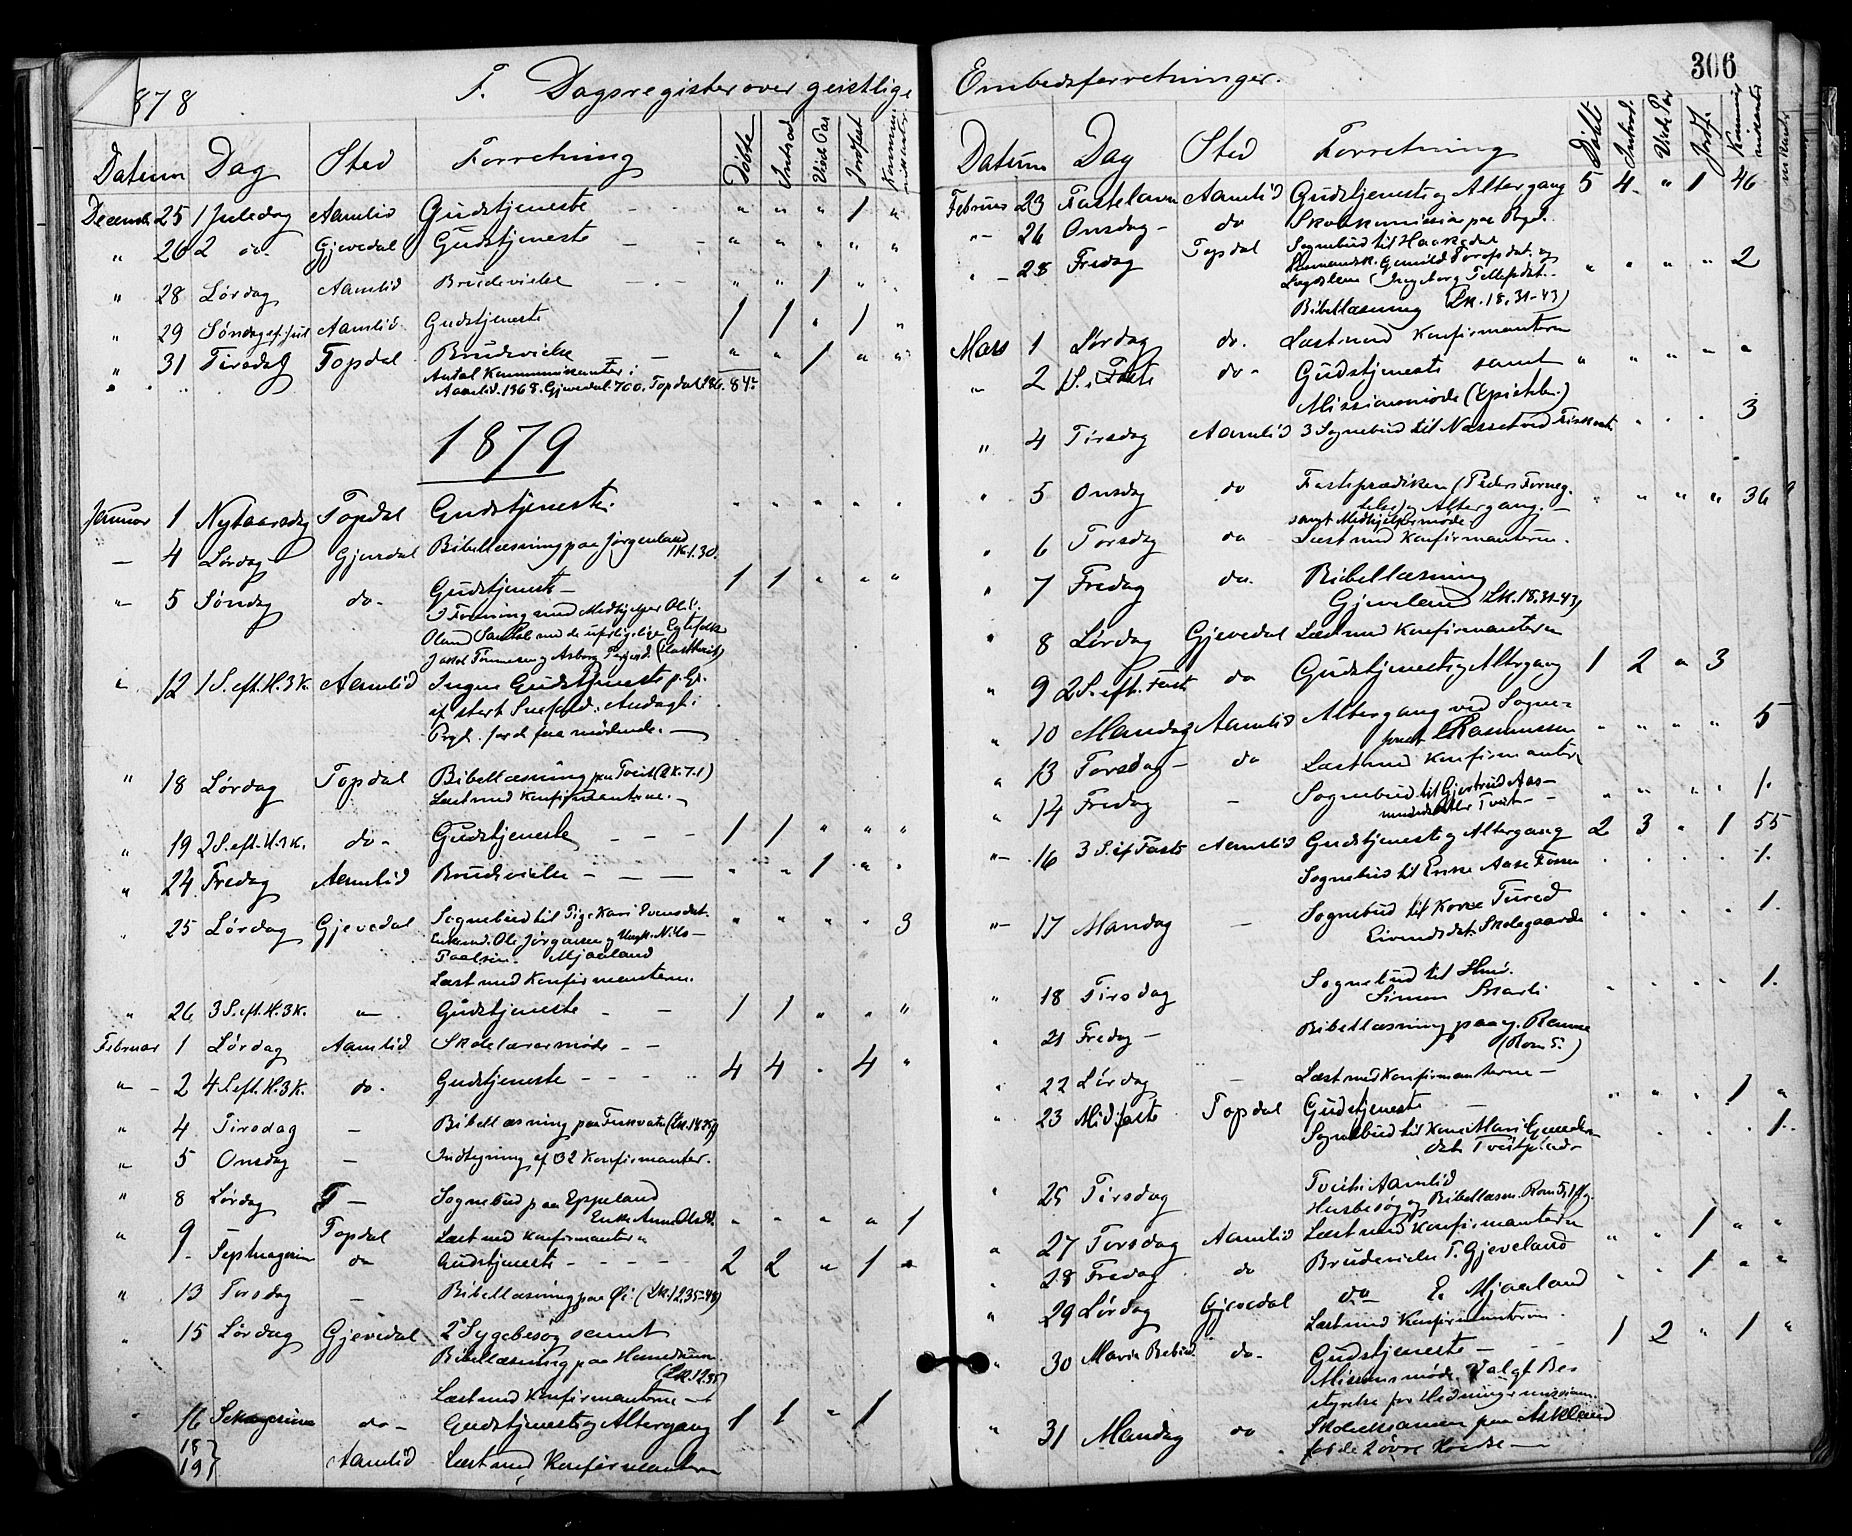 1878 F. Dagsregister over geistlige
Datum Dag Sted Forretning Döbte Introd. Viede Par Jordfæst Kommunikanter
Decemb. 25 1 Juledag Aamlid Gudstjeneste - - " " " 1 "
" 26 2 do. Gjevedal Gudstjeneste - - " " " " "
" 28 Lørdag Aamlid Brudevielse - - " " 1 " "
" 29 Søndag ef. Jul Aamlid Gudstjeneste 1 1 " 1 "
" 31 Tirsdag Topdal Brudevielse - - " " 1 " "
Antal Kommunikanter i
Aamlid. 1368. Gjevedal. 700. Topdal 186.
1879
Januar 1 Nytaarsdag Topdal Gudstjeneste. " " " " "
— 4 Lørdag Gjevedal Bibellæsning paa Jørgenland
1K.1.30.
"- 5 Søndag do- Gudstjeneste- 1 1 " " "
med Medhjelper Ole
" 12 1 S. eft. H.3K. Aamlid Ingen Gudstjeneste p. Gr.
af stort Snefald. Andagt i
Prgd. for de faa mødende. —
" 18 Lørdag Topdal Bibellæsning paa Tveit (Lk.7.1)
Læst med Konfirmanterne. -
" 19 2 S. eft. H.3K. do- Gudstjeneste - - - 1 1 " " "
" 24 Fredag Aamlid Brudevielse - - — " " 1 " "
" 25 Lørdag Gjevedal Sognebud til Pige Kari Evensdat. " " " " 3
Enkemd. Ole Jørgensen og Ungk. Nils —
Paalsen Mjaaland
Læst med Konfirmantern.
" 26 3 S. eft. H.3K. "- Gudstjeneste - - 1 1 " " "
Februar 1 Lørdag Aamlid Skolelærermøde - -
"- 2 4 S. eft. H.3K. do. Gudstjeneste - - - - 4 4 " 4 "
" 4 Tirsdag — Bibellæsning paa
" 5 Onsdag — Indtegning af 32 Konfirmanter.
" 8 Lørdag — Sognebud paa Eppeland
Enke Anne Olsd. " " " " 1
" 9 Topdal Læst med Konfirmantern
Septuagesima do Gudstjeneste - - - - - 2 2 " 1 "
" 13 Torsdag — Bibellæsning paa Øi (Lk.12.35-48)
" 15 Lørdag Gjevedal 2 Sygebesøg samt
Bibellæsning paa
(Lk.12.35)
Læst med Konfirmanterne -
" 16 do- Gudstjeneste og Altergang 1 1 " 1
18
19 } Aamlid Læst med Konfirmantern
Embedsforretninger. 306
Datum Dag Sted Forretning Döbt. Introd. Viede Par Jordf. Kommunikanter
Februar 23 Fastelavn Aamlid Gudstjeneste og Altergang 5 4 " 1 46
"- 26 Onsdag- do Skolekommission paa Prgd.
"- 28 Fredag Topdal Sognebud til Haaksdal
Gunild Torgrsdat. og
Ingeborg Tellefsdat. - " " " " 2
Bibellæsning (Lk.18,31-43)
Mars 1 Lørdag do. Læst med Konfirmantern
"- 2 1 S. i Faste do- Gudstjeneste samt " " " " "
Missionsmøde
" 4 Tirsdag Aamlid 3 Sognebud til Næs " " " 3
" 5 Onsdag do Fasteprædiken (Peders Forneg-
telse) og Altergang. - " " " " 36
samt Medhjelpermøde
" 6 Torsdag do Læst med Konfirmanterne.
" 7 Fredag do- Bibellæsning
Gjeveland (Lk.18.31-43)
" 8 Lørdag Gjevedal Læst med Konfirmantern
" 9 2 S. eft. Fast. do Gudstjeneste og Altergang 1 2 " 3
" 10 Mandag Aamlid Altergang ved Sogne-
præst Rasmussen " " " " 5
" 13 Torsdag- do Læst med Konfirmanter
" 14 Fredag - Sognebud til Gjertrud Aas-
mundsdatter Tveit - - " " " " 1.
"- 16 3 S. i Faste Aamlid Gudstjeneste og Altergang 2 3 " 1 55
Sognebud til Enke Aase 1.
"- 17 Mandag - Sognebud til Kone Tured
Eivindsdat. Skolegaarde 1.
" 18 Tirsdag Sognebud til
Simon 1.
" 21 Fredag - Bibellæsning paa
(Rom 5.)
" 22 Lørdag - Læst med Konfirmanterne -
" 23 Midfaste Topdal Gudstjeneste - " " " 1 "
Sognebud til Kone Mari Gunders-
dat. 1.
" 25 Tirsdag Tveit i Aamlid
Husbesøg og Bibellæsn.
" 27 Torsdag Aamlid Læst med Konfirmantern
" 28 Fredag do Brudevielse T. Gjeveland " " 1 " "
" 29 Lørdag Gjevedal do E. Mjaaland " " 1 " "
Læst med Konfirmanterne.
" 30 Maria Bebud. do- Gudstjeneste - - 1 2 " 1 "
Missionsmøde. Valgt Be-
styrelse for Hedningemission.
" 31 Mandag do Skoleexamen paa Askland
for de 2 øvre Kredse -